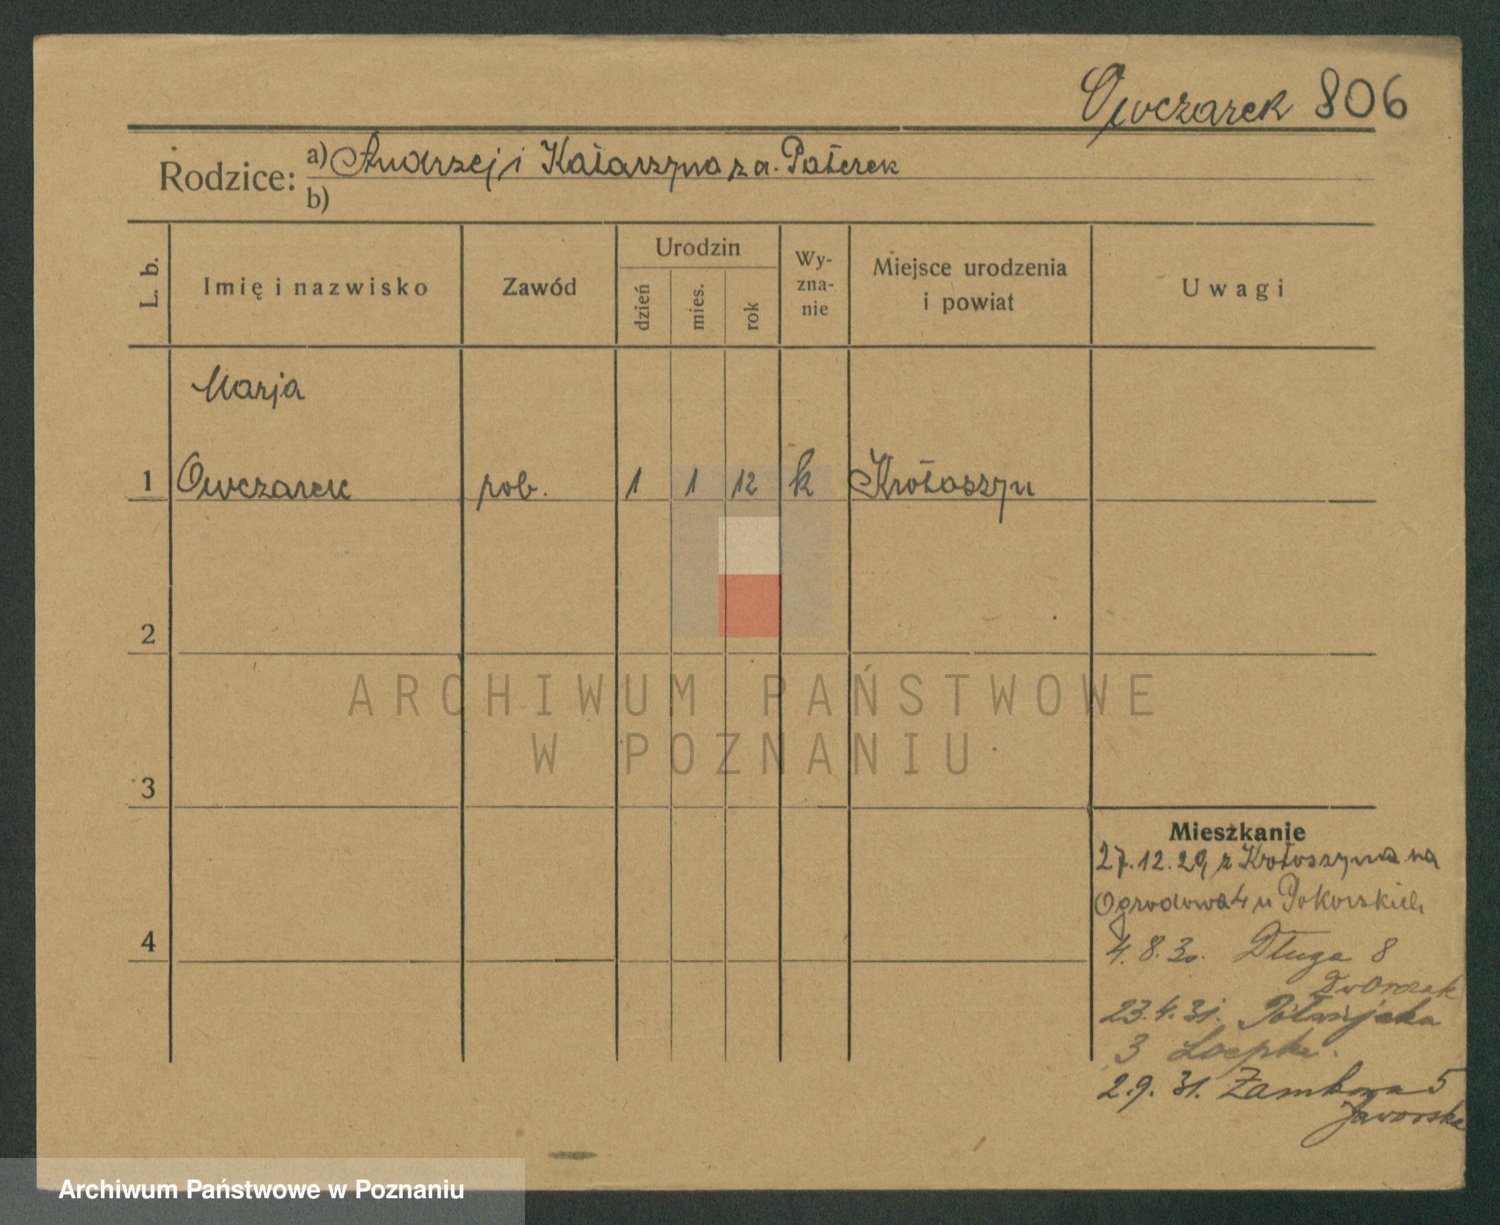 Owczarek 806
Rodzice: a) Andrzej i Katarzyna z d. Paterek
b)
L. b. Imię i nazwisko Zawód Urodzin dzień mies. rok Wy-zna-nie Miejsce urodzenia i powiat Uwagi
Marja
1 Owczarek rob. 1 1 12 k Krotoszyn
2
ARCHIWUM PAŃSTWOWE
W POZNANIU
3
Mieszkanie
27.12.29 z Krotoszyna na
Ogrodowa 4 u Pokorskich
4
4.8.30. Długa 8
Dworczak
23.4.31. Półwiejska
3
2.9.31. Zamkowa 5
Jaworska
Archiwum Państwowe w Poznaniu